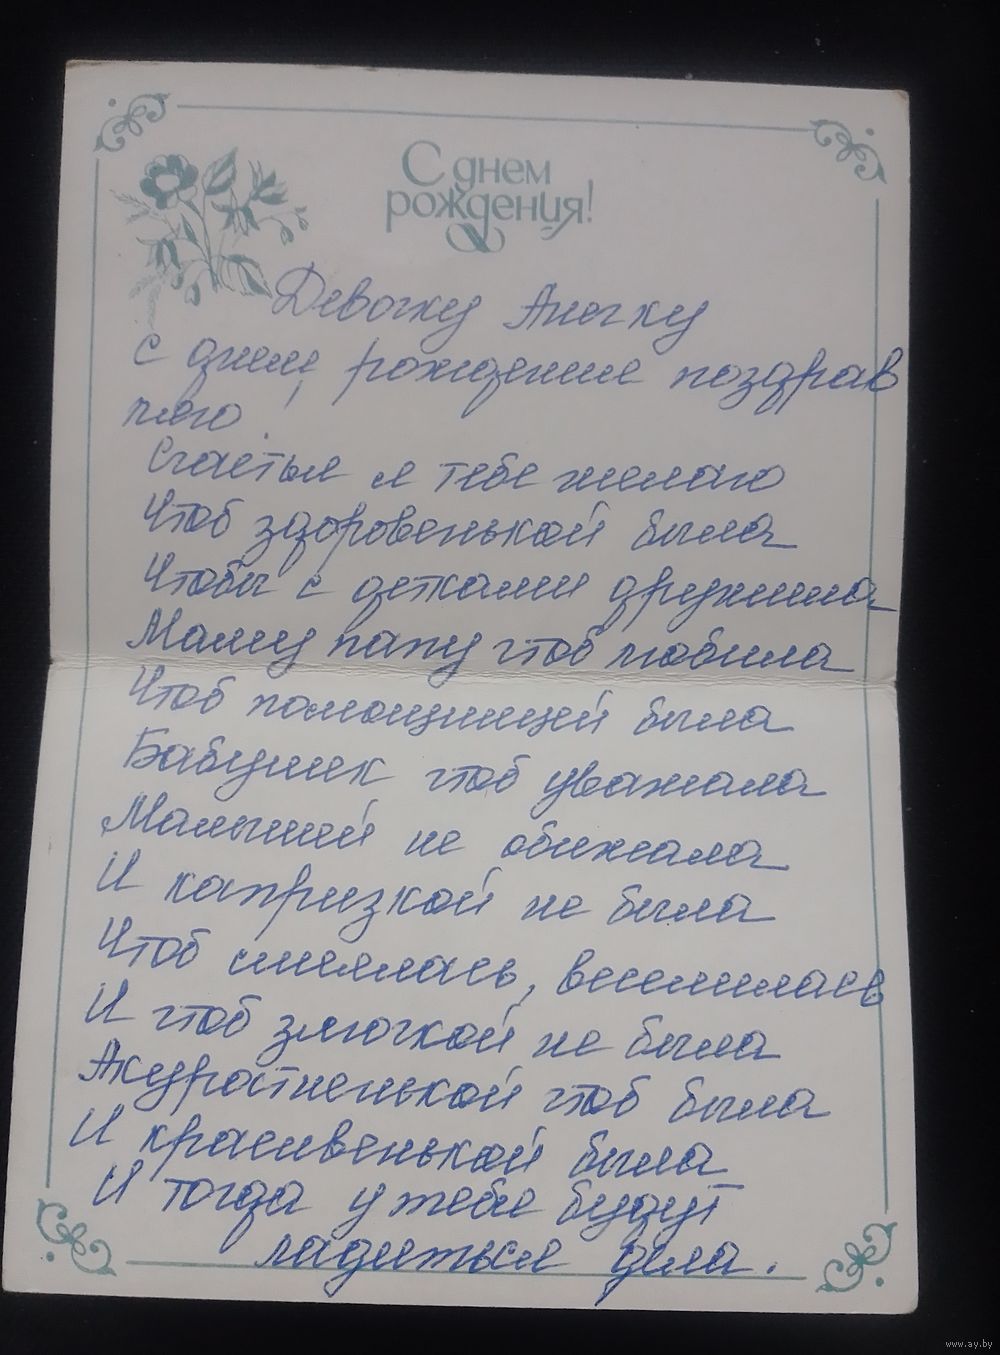 С днем
рождения!
Девочку Анечку
с днем рождение поздрав
ляю
Счастья я тебе желаю
Чтоб здоровенькой была
Чтобы с детками дружила
Маму папу чтоб любила
Чтоб помощницей была
Бабушек чтоб уважала
Малышей не обижала
И капризкой не была
Чтоб смеялась, веселилась
И чтоб злючкой не была
Акуратненькой чтоб была
И красивенькой была
И тогда у тебе будут
ладиться дела.
www.ay.by